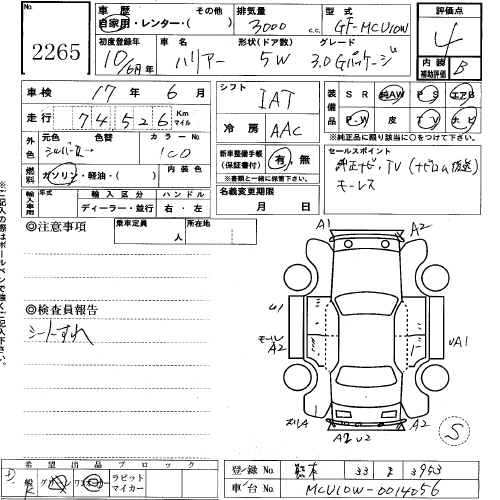 2265
車歴 その他
自家用・レンター・( )
排気量
3000 c.c.
型式
GF-MCU10W
評価点
4
内装補助評価 B
初度登録年
10/6月年
車名
ハリアー
形状(ドア数)
5W
グレード
3.0Gパッケージ
車検 17年 6月
走行 74526 Km マイル
外色 元色 色替 カラーNo
シルバー 1C0
燃料 ガソリン・軽油・( ) 内装色
輸入車用 年式 輸入区分 ハンドル
ディーラー・並行 右・左
シフト IAT
冷房 AAC
新車整備手帳(保証書付) 有・無
※書類と一緒に保管下さい。
名義変更期限
月 日
装備品 SR 純AW PS エアB
PW 皮 TV ナビ
※純正品に限り該当に○をつけて下さい。
セールスポイント
純正ナビ、TV
モーレス
◎注意事項
乗車定員 人
所在地
◎検査員報告
シートすれ
※ご記入の際はボールペンで強くご記入下さい。
A1 A2
U1
モール A2
UA1
スリA A2 U2 A2
S
希望出品ブロック
ラビットマイカー
登録No 熊本 33 3953
車台No MCU10W-0014056